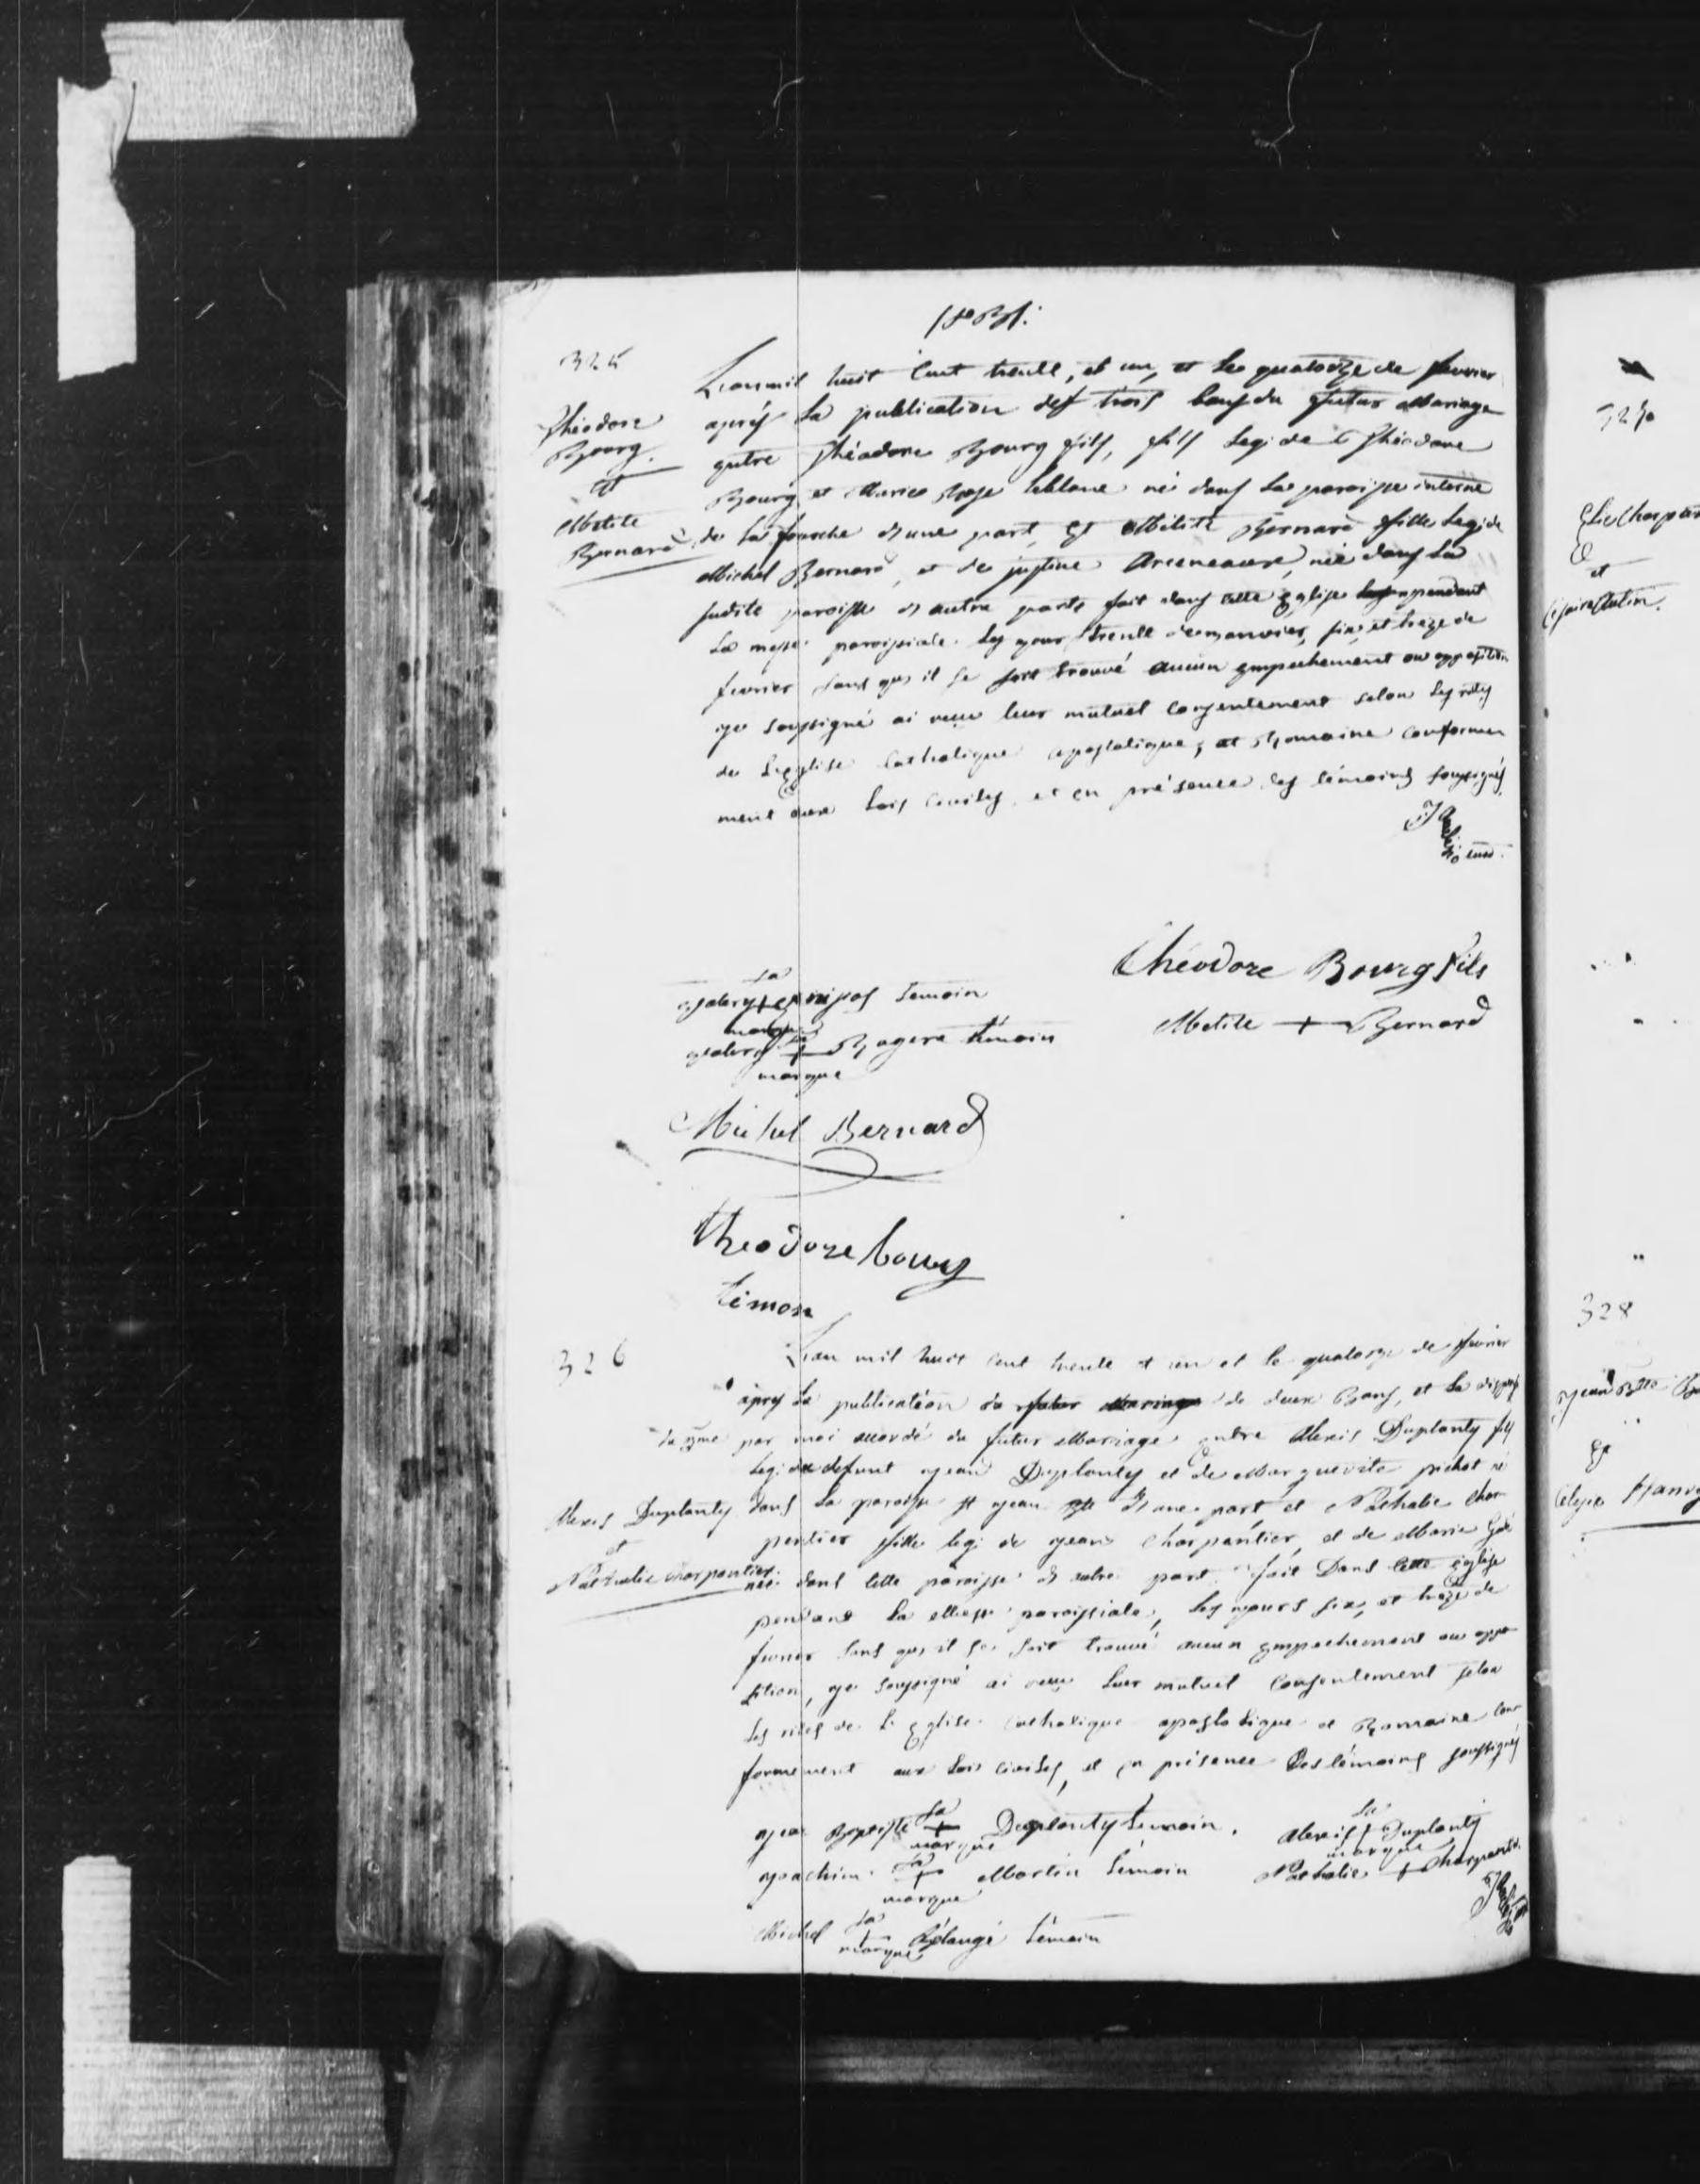 1831.
325
Théodore
Bourg.
et
Metile
Bernard
L'an mil huit cent trente, et un, et le quatorze de fevrier
après la publication des trois bans du futur Mariage
entre Théodore Bourg fils, fils leg: de Théodore
Bourg et Marie Rose leblanc né dans la paroisse interne
de la fourche d'une part, et Métite Bernard fille leg: de
Michel Bernard, et de justine Arceneaux, née dans la
sudite paroisse d'autre part, fait dans cette Eglise pendant
la messe paroissiale les jours trente de janvier, six et treize de
fevrier sans qu'il se soit trouvé aucun empechement ou opposition
je soussigné ai reçu leur mutuel consentement selon les rites
de L'eglise Catholique apostolique, et Romaine conforme
ment aux lois civiles, et en présence des témoins soussignés
curé.
Théodore Bourg fils
Metite + Bernard
sa
+ témoin
marque
sa
+ témoin
marque
Michel Bernard
theodore bourg
témoin
326
Alexis Duplanty
et
Nathalie Charpentier
L'an mil huit cent trente et un et le quatorze de fevrier
après la publication de deux Bans, et la dispense
du 3me par moi accordé du futur Mariage entre Alexis Duplanty fils
leg: de defunt jean Duplanty et de Marguerite pichot né
dans la paroisse St jean Bte d'une part et Nathalie Char
pentier fille leg: de jean Charpentier, et de Marie
née dans cette paroisse d'autre part fait Dans cette Eglise
pendant la Messe paroissiale, les jours six, et treize de
fevrier sans qu'il se soit trouvé aucun empechement ou oppo
sition, je soussigné ai reçu leur mutuel consentement selon
les rites de L'Eglise Catholique apostolique et Romaine con
formement aux lois civiles, et en présence Des témoins soussignés
jean Baptiste sa + marque Duplanty témoin. Alexis sa + marque Duplanty
joachim sa + marque Martin témoin Nathalie + Charpentier
Michel sa + marque Bélangé témoin
327
Elie Charpen
et
328
jean Bte
et